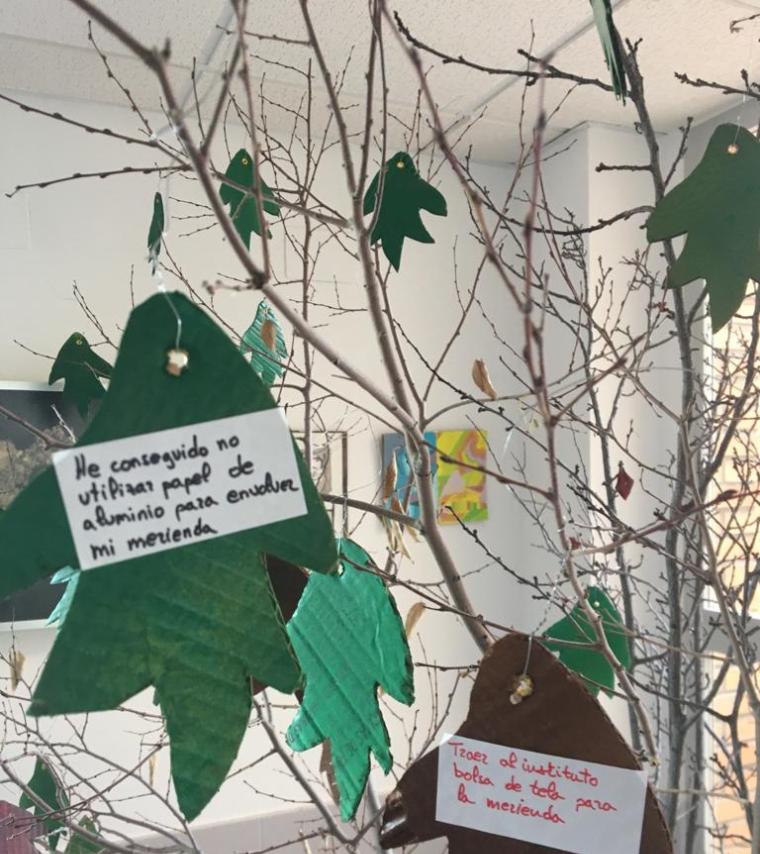 He conseguido no
utilizar papel de
aluminio para envolver
mi merienda
Traer al instituto
bolsa de tela para
la merienda